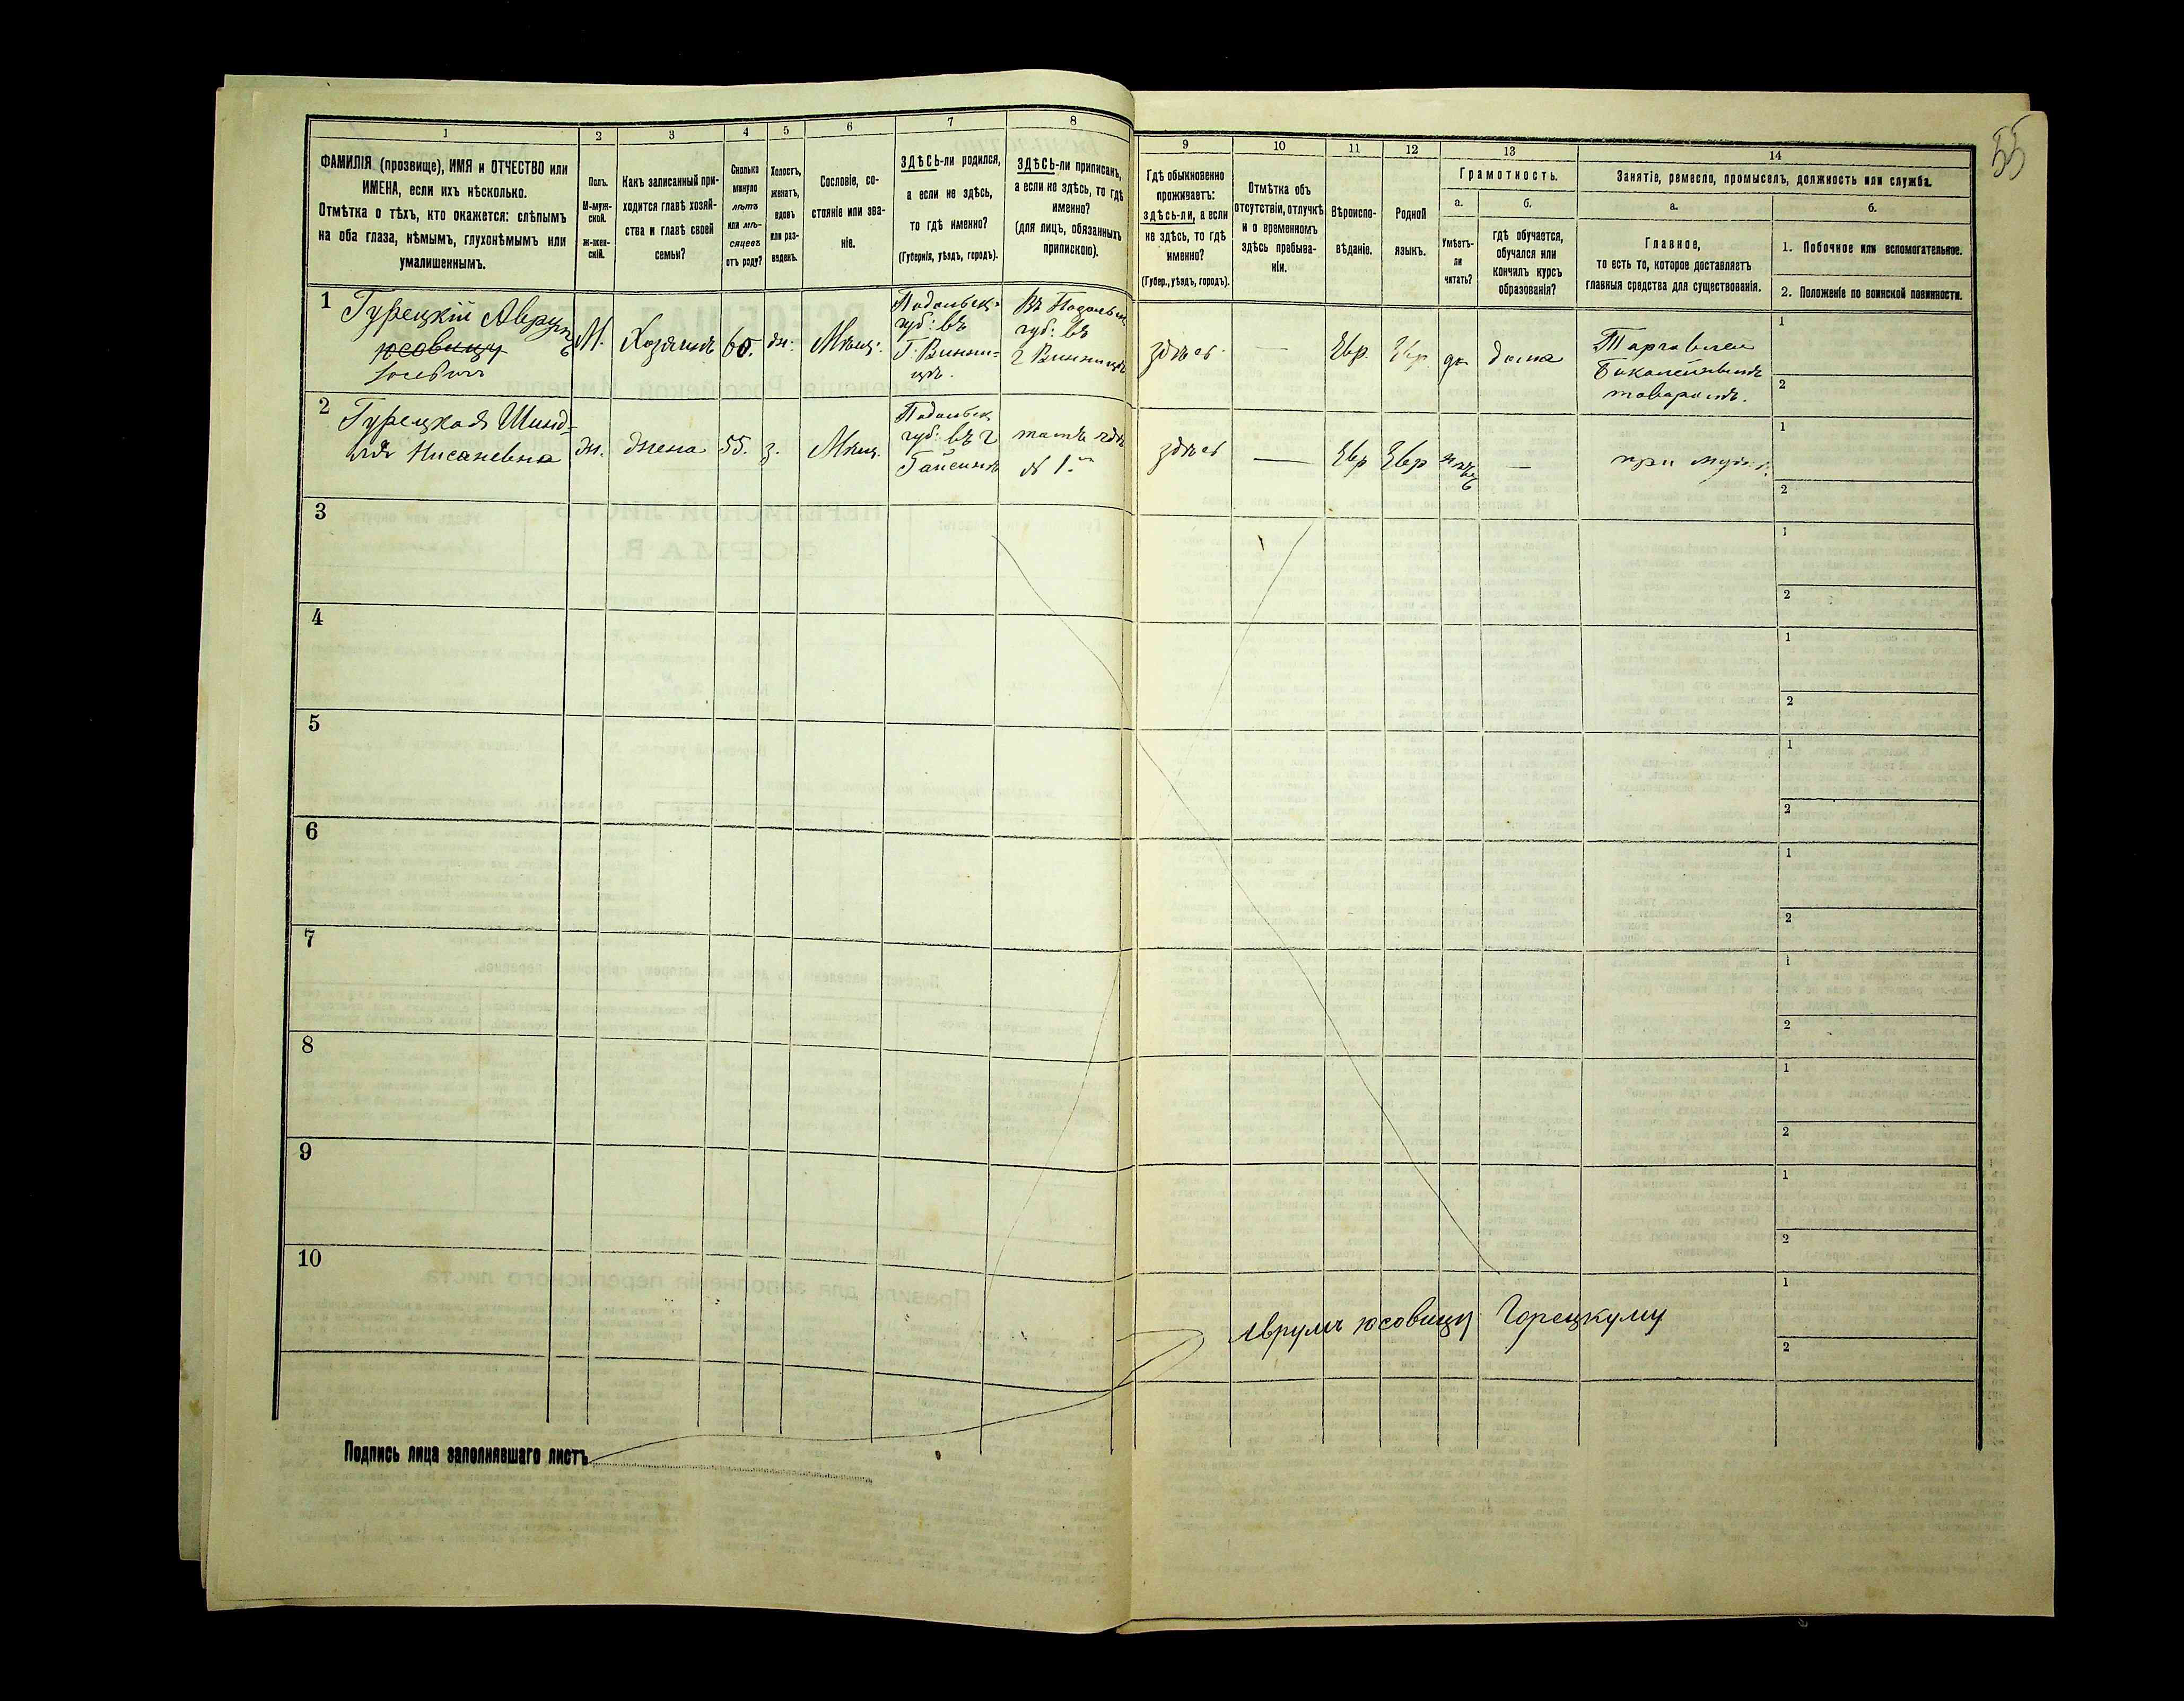 55
1
2
3
4
5
6
7
8
9
10
11
12
13
14
ФАМИЛІЯ (прозвище), ИМЯ и ОТЧЕСТВО или
ИМЕНА, если ихъ нѣсколько.
Отмѣтка о тѣхъ, кто окажется: слѣпымъ
на оба глаза, нѣмымъ, глухонѣмымъ или
умалишеннымъ.
Полъ.
М-муж-
ской.
ж-жен-
скій.
Какъ записанный при-
ходится главѣ хозяй-
ства и главѣ своей
семьи?
Сколько
минуло
лѣтъ
или мѣ-
сяцевъ
отъ роду?
Холостъ,
женатъ,
вдовъ
или раз-
веденъ.
Сословіе, со-
стояніе или зва-
ніе.
ЗДѢСЬ-ли родился,
а если не здѣсь,
то гдѣ именно?
(Губернія, уѣздъ, городъ).
ЗДѢСЬ-ли приписанъ,
а если не здѣсь, то гдѣ
именно?
(для лицъ, обязанныхъ
припискою).
Гдѣ обыкновенно
проживаетъ:
здѣсь-ли, а если
не здѣсь, то гдѣ
именно?
(Губер., уѣздъ, городъ).
Отмѣтка объ
отсутствіи, отлучкѣ
и о временномъ
здѣсь пребыва-
ніи.
Вѣроиспо-
вѣданіе.
Родной
языкъ.
Грамотность.
а.
Умѣетъ-
ли
читать?
б.
гдѣ обучается,
обучался или
кончилъ курсъ
образованія?
Занятіе, ремесло, промыселъ, должность или служба.
а.
Главное,
то есть то, которое доставляетъ
главныя средства для существованія.
б.
1. Побочное или вспомогательное.
2. Положеніе по воинской повинности.
1
Гурецкій Аврумъ
юсовицу
М.
Хозяинъ
60.
ж.
Мѣщ.
Подольск.
губ: въ
Г. Винни=
цѣ.
Въ Подольск
губ: въ
г Винницѣ
здѣсь
—
Евр.
Евр.
да
дома
Торговлею
Бакалейнымъ
товаромъ.
1
2
2
Гурецкая Шинд=
ля Нисаневна
ж.
жена
55.
з.
Мѣщ.
Подольск
губ: въ г
Гайсинѣ
тамъ гдѣ
№ 1.й
здѣсь
—
Евр
Евр
нѣтъ
—
при мужѣ.
1
2
3
1
2
4
1
2
5
1
2
6
1
2
7
1
2
8
1
2
9
1
2
10
1
2
Аврумъ юсовицу Горецкуму
Подпись лица заполнявшаго листъ